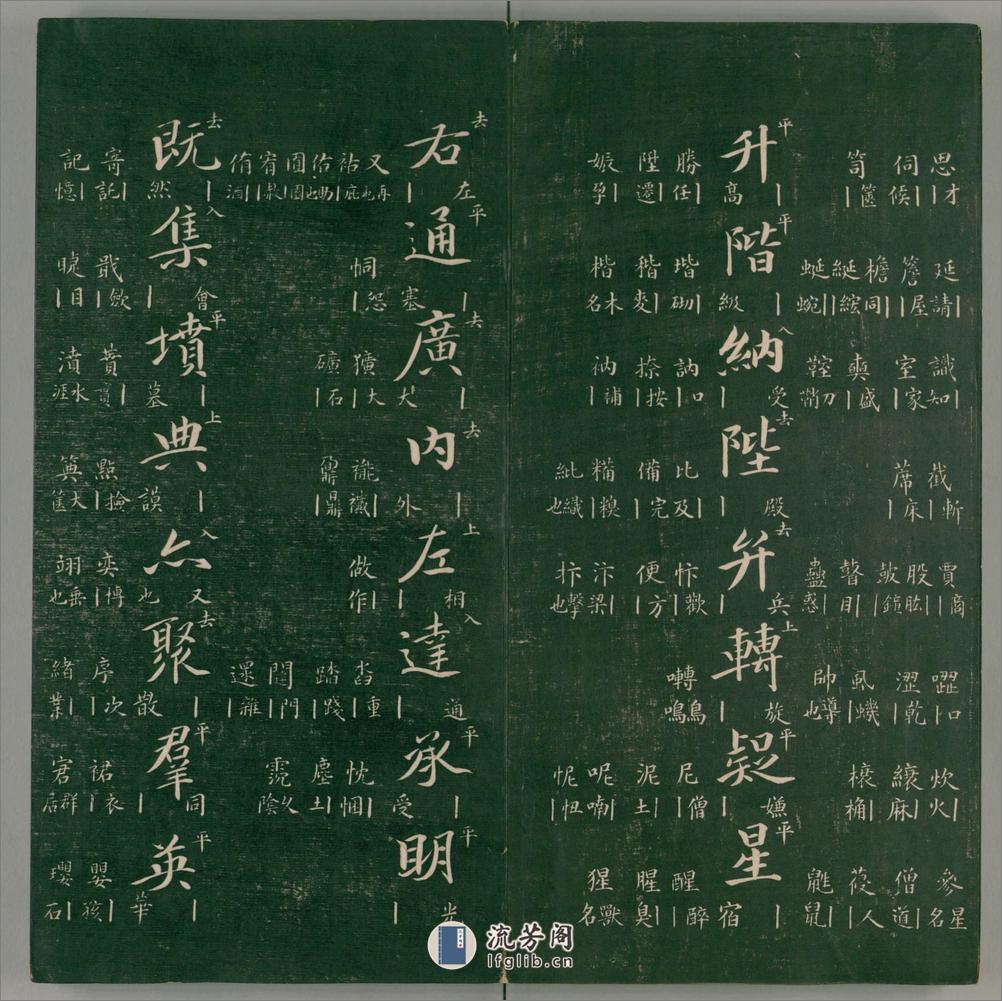 思才|
延請|
識知|
截斬|
賈商|
口|
炊火|
參星名
伺候|
簷屋|
室家|
蓆床|
股肱|
澀乾|
麻|
僧道|
笥篋|
檐同|
盛|
鼓鐘|
虱蟣|
桶|
葰人|
綖紘|
蜒蜿|
瞽目|
蠱惑|
帥導也
鼪鼠|
平升高|
平階級|
入納受|
去陛殿|
去弁兵|
上轉旋|
平疑嫌|
平星宿|
勝任|
堦砌|
訥口|
比及|
忭歡|
囀鳥鳴
尼僧|
醒醉|
陞還|
稭麥|
捺按|
備完|
便方|
泥土|
腥臭|
娠孕|
楷木名
衲補|
糒糗|
紕織也
汴梁|
抃擊也
呢喃|
怩忸|
猩獸名
去右左|
平通塞|
去廣大|
去內外|
上左相|
入達通|
平承受|
平明光|
又再也
祐庇|
佑助也
囿園|
宥赦|
侑酒|
恫怨|
獷犬|
礦石|
做作|
沓重|
踏踐|
闥門|
忱悃|
塵土|
霒久陰
去既然|
入集會|
平墳墓|
上典謨|
入亦又也
去聚散|
平羣同|
平英華|
寄託|
記憶|
戢斂|
睫目|
蕡實|
濆水涯
點檢|
奕博|
翊垂也
序次|
緒業|
裙衣|
宭群居
嬰孩|
瓔石|
流芳阁
lfglib.cn